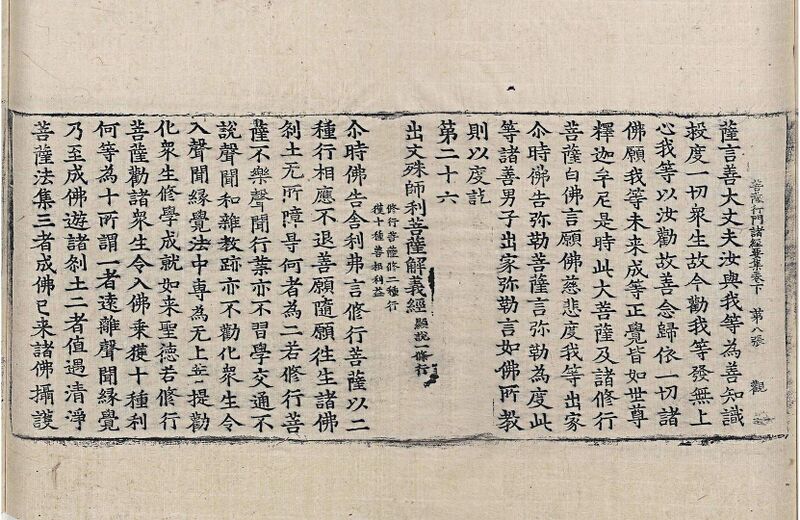 菩薩行門諸經要集卷下 第八張 觀
薩言善大丈夫汝與我等為善知識
救度一切衆生故今勸我等發無上
心我等以汝勸故善念歸依一切諸
佛願我等未來成等正覺皆如世尊
釋迦牟尼是時此大菩薩及諸修行
菩薩白佛言願佛慈悲度我等出家
尒時佛告弥勒菩薩言弥勒為度此
等諸善男子出家弥勒言如佛所教
則以度訖
第二十六
出文殊師利菩薩解義經 顯說一修行
修行菩薩修二種行
獲十種善根利益
尒時佛告舍利弗言修行菩薩以二
種行相應不退善願隨願往生諸佛
刹土无所障导何者為二若修行菩
薩不樂聲聞行業亦不習學交通不
說聲聞和雜教跡亦不勸化衆生令
入聲聞緣覺法中専為无上𦬇提勸
化衆生修學成就如来聖德若修行
菩薩勸諸衆生令入佛乘獲十種利
何等為十所謂一者遠離聲聞緣覺
乃至成佛遊諸刹土二者值遇清淨
菩薩法集三者成佛已来諸佛攝護